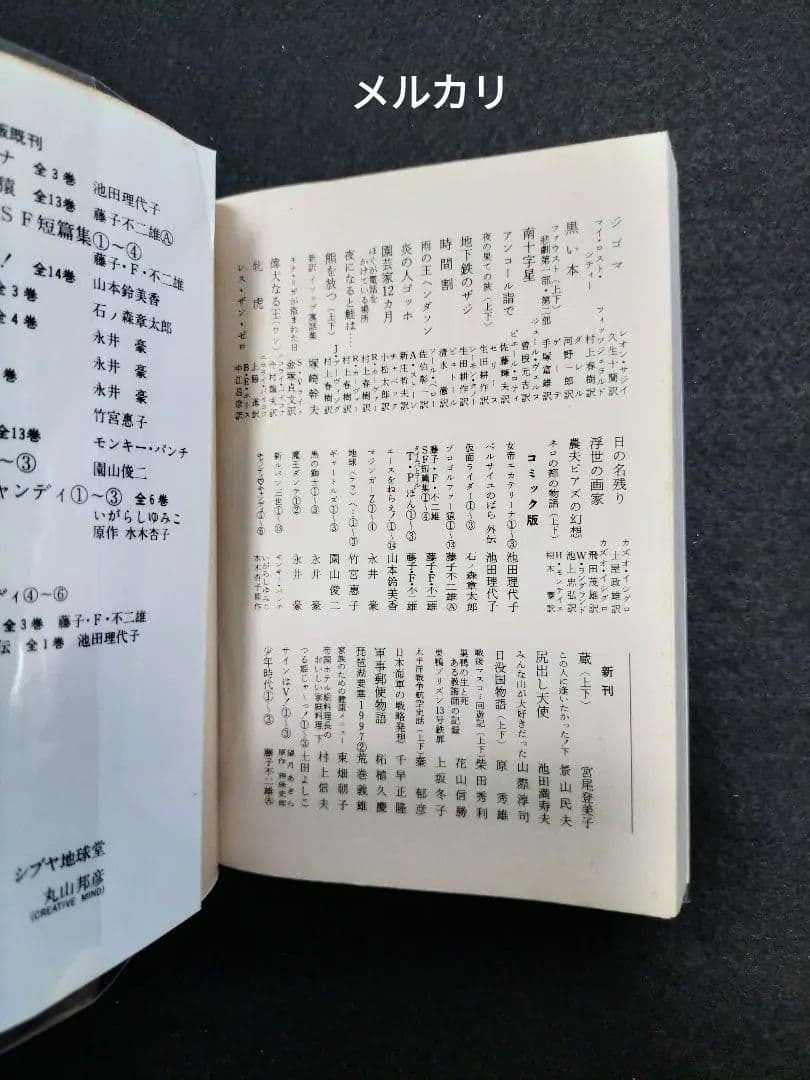 メルカリ
版既刊
ナ 全3巻 池田理代子
猿 全13巻 藤子不二雄Ⓐ
SF短篇集①～④
藤子・F・不二雄
! 全14巻 山本鈴美香
全3巻 石ノ森章太郎
全4巻 永井 豪
永井 豪
巻 永井 豪
竹宮惠子
全13巻 モンキー・パンチ
～③ 園山俊二
ャンディ①～③ 全6巻
いがらしゆみこ
原作 水木杏子
ディ④～⑥
全3巻 藤子・F・不二雄
伝 全1巻 池田理代子
シブヤ地球堂
丸山邦彦
(CREATIVE MIND)
ジゴマ レオン・サジイ 久生十蘭訳
マイ・ロスト・シティー フィッツジェラルド 村上春樹訳
黒い本 ダレル 河野一郎訳
ファウスト(上下) 悲劇第一部・第二部 ゲーテ 手塚富雄訳
南十字星 ジュール・ヴェルヌ 曽根元吉訳
アンコール詣で ピエール・ロティ 佐藤輝夫訳
夜の果ての旅(上下) セリーヌ 生田耕作訳
地下鉄のザジ レーモン・クノー 生田耕作訳
時間割 ビュトール 清水徹訳
雨の王ヘンダソン ソール・ベロー 佐伯彰一訳
炎の人ゴッホ A・ストーン 新庄哲夫訳
園芸家12カ月 チャペック 小松太郎訳
ぼくが電話をかけている場所 R・カーヴァー 村上春樹訳
夜になると鮭は… R・カーヴァー 村上春樹訳
熊を放つ(上下) J・アーヴィング 村上春樹訳
新訳 イソップ寓話集 塚崎幹夫訳
モナ・リザが盗まれた日 金塚貞文訳
偉大なる王(ワン) ニコライ・バイコフ 今村龍夫訳
牝虎 ニコライ・バイコフ 上脇進訳
レス・ザン・ゼロ B・E・エリス 中江昌彦訳
日の名残り カズオ・イシグロ 土屋政雄訳
浮世の画家 カズオ・イシグロ 飛田茂雄訳
農夫ピアズの幻想 W・ラングランド 池上忠弘訳
ネロの都の物語(上下) H・モンティエ
コミック版
女帝エカテリーナ①～③ 池田理代子
ベルサイユのばら 外伝 池田理代子
仮面ライダー①～③ 石ノ森章太郎
プロゴルファー猿①～⑬ 藤子不二雄Ⓐ
藤子・F・不二雄 SF短篇集①～④ 藤子・F・不二雄
T・Pぼん①～③ 藤子・F・不二雄
エースをねらえ!①～⑭ 山本鈴美香
マジンガーZ①～④ 永井 豪
地球(テラ)へ…①～③ 竹宮惠子
ギャートルズ①～③ 園山俊二
黒の獅士①～③ 永井 豪
魔王ダンテ①② 永井 豪
新ルパン三世①～⑬ モンキー・パンチ
キャンディ♡キャンディ①～⑥ いがらしゆみこ 水木杏子原作
新刊
蔵(上下) 宮尾登美子
この人に逢いたかった!下 景山民夫
尻出し天使 池田満寿夫
みんな山が大好きだった 山際淳司
日没国物語(上下) 原 秀雄
戦後マスコミ回遊記(上下) 柴田秀利
巣鴨の生と死 ある教誨師の記録 花山信勝
巣鴨プリズン13号鉄扉 上坂冬子
太平洋戦争航空史話(上下) 秦 郁彦
日本海軍の戦略発想 千早正隆
軍事郵便物語 柘植久慶
琵琶湖要塞1997② 荒巻義雄
家族のための健康メニュー 東畑朝子
帝国ホテル総料理長のおいしい家庭料理 下 村上信夫
つる姫じゃ～っ!①～③ 土田よしこ
サインはV!①～③ 望月あきら 原作 神保史郎
少年時代①～③ 藤子不二雄Ⓐ